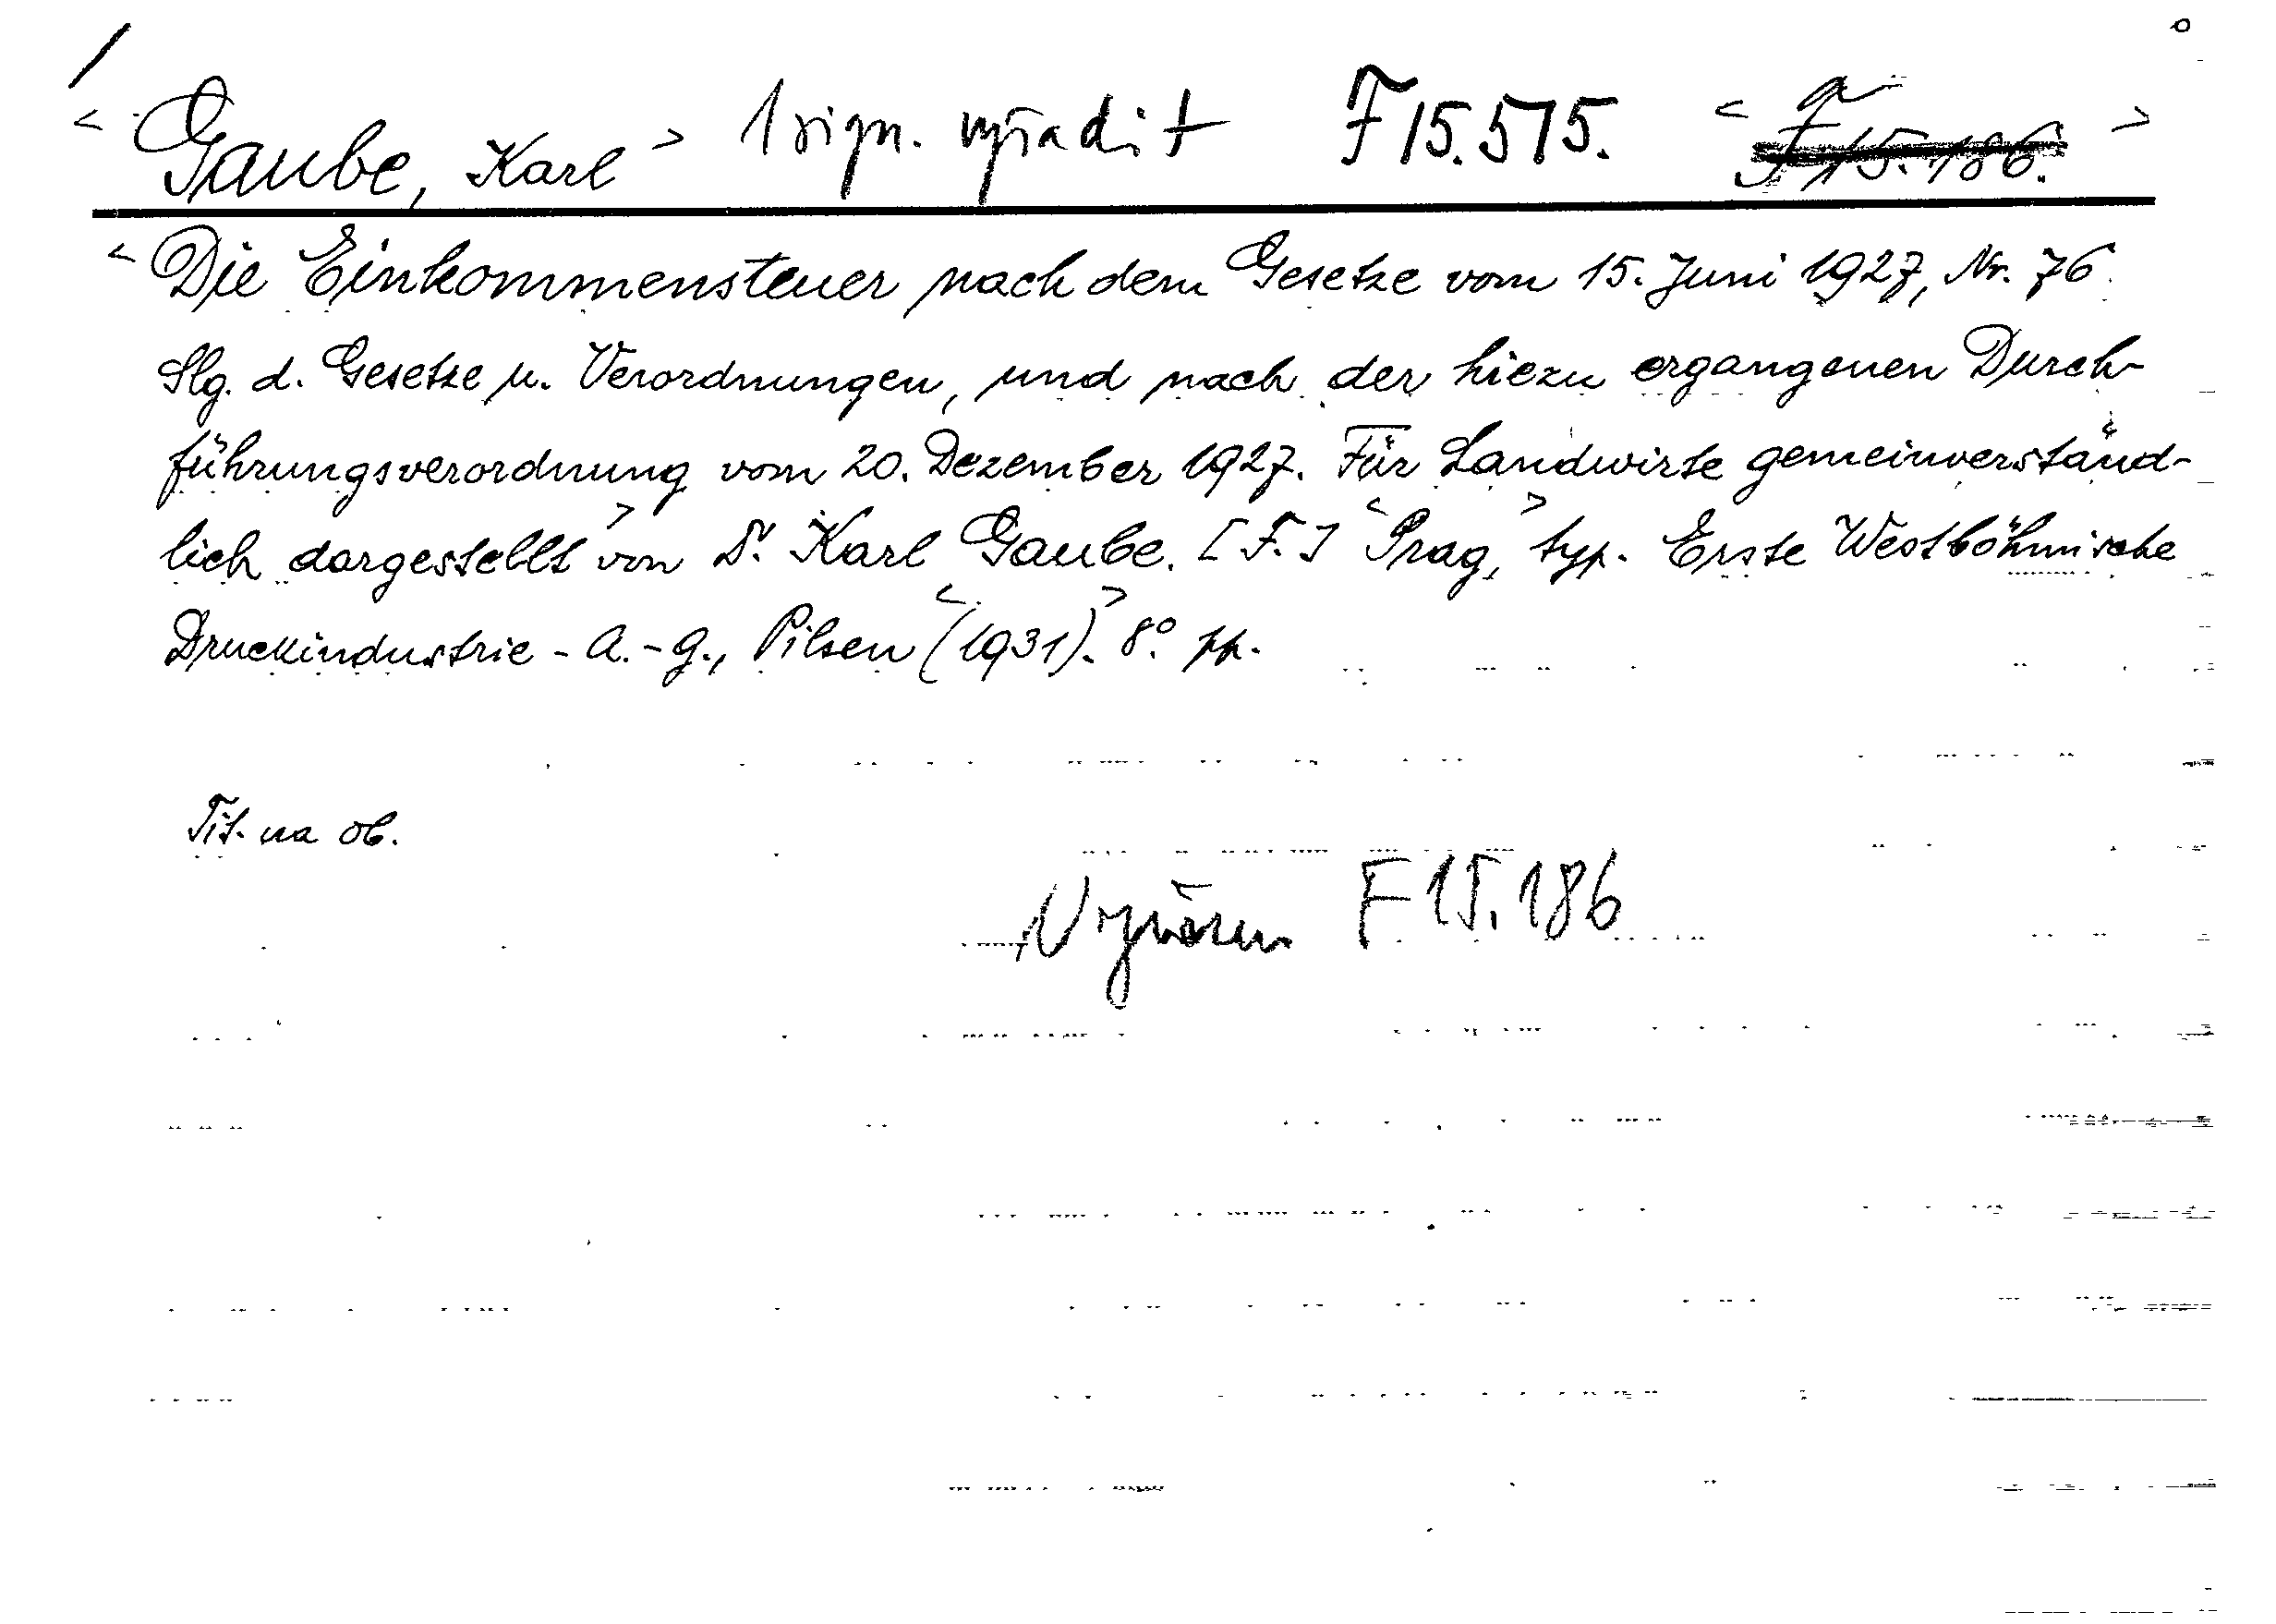 Gaube, Karl 1 sign. vyřadit F 15.515. a F 15.186.
Die Einkommensteuer nach dem Gesetze vom 15. Juni 1927, Nr. 76
Slg. d. Gesetze u. Verordnungen, und nach der hiezu ergangenen Durch-
führungsverordnung vom 20. Dezember 1927. Für Landwirte gemeinverständ-
lich dargestellt von Dr. Karl Gaube. [F.] Prag, typ. Erste Westböhmische
Druckindustrie-A.-G., Pilsen (1931). 8°. pp.
Tit. na ob.
F 15.186